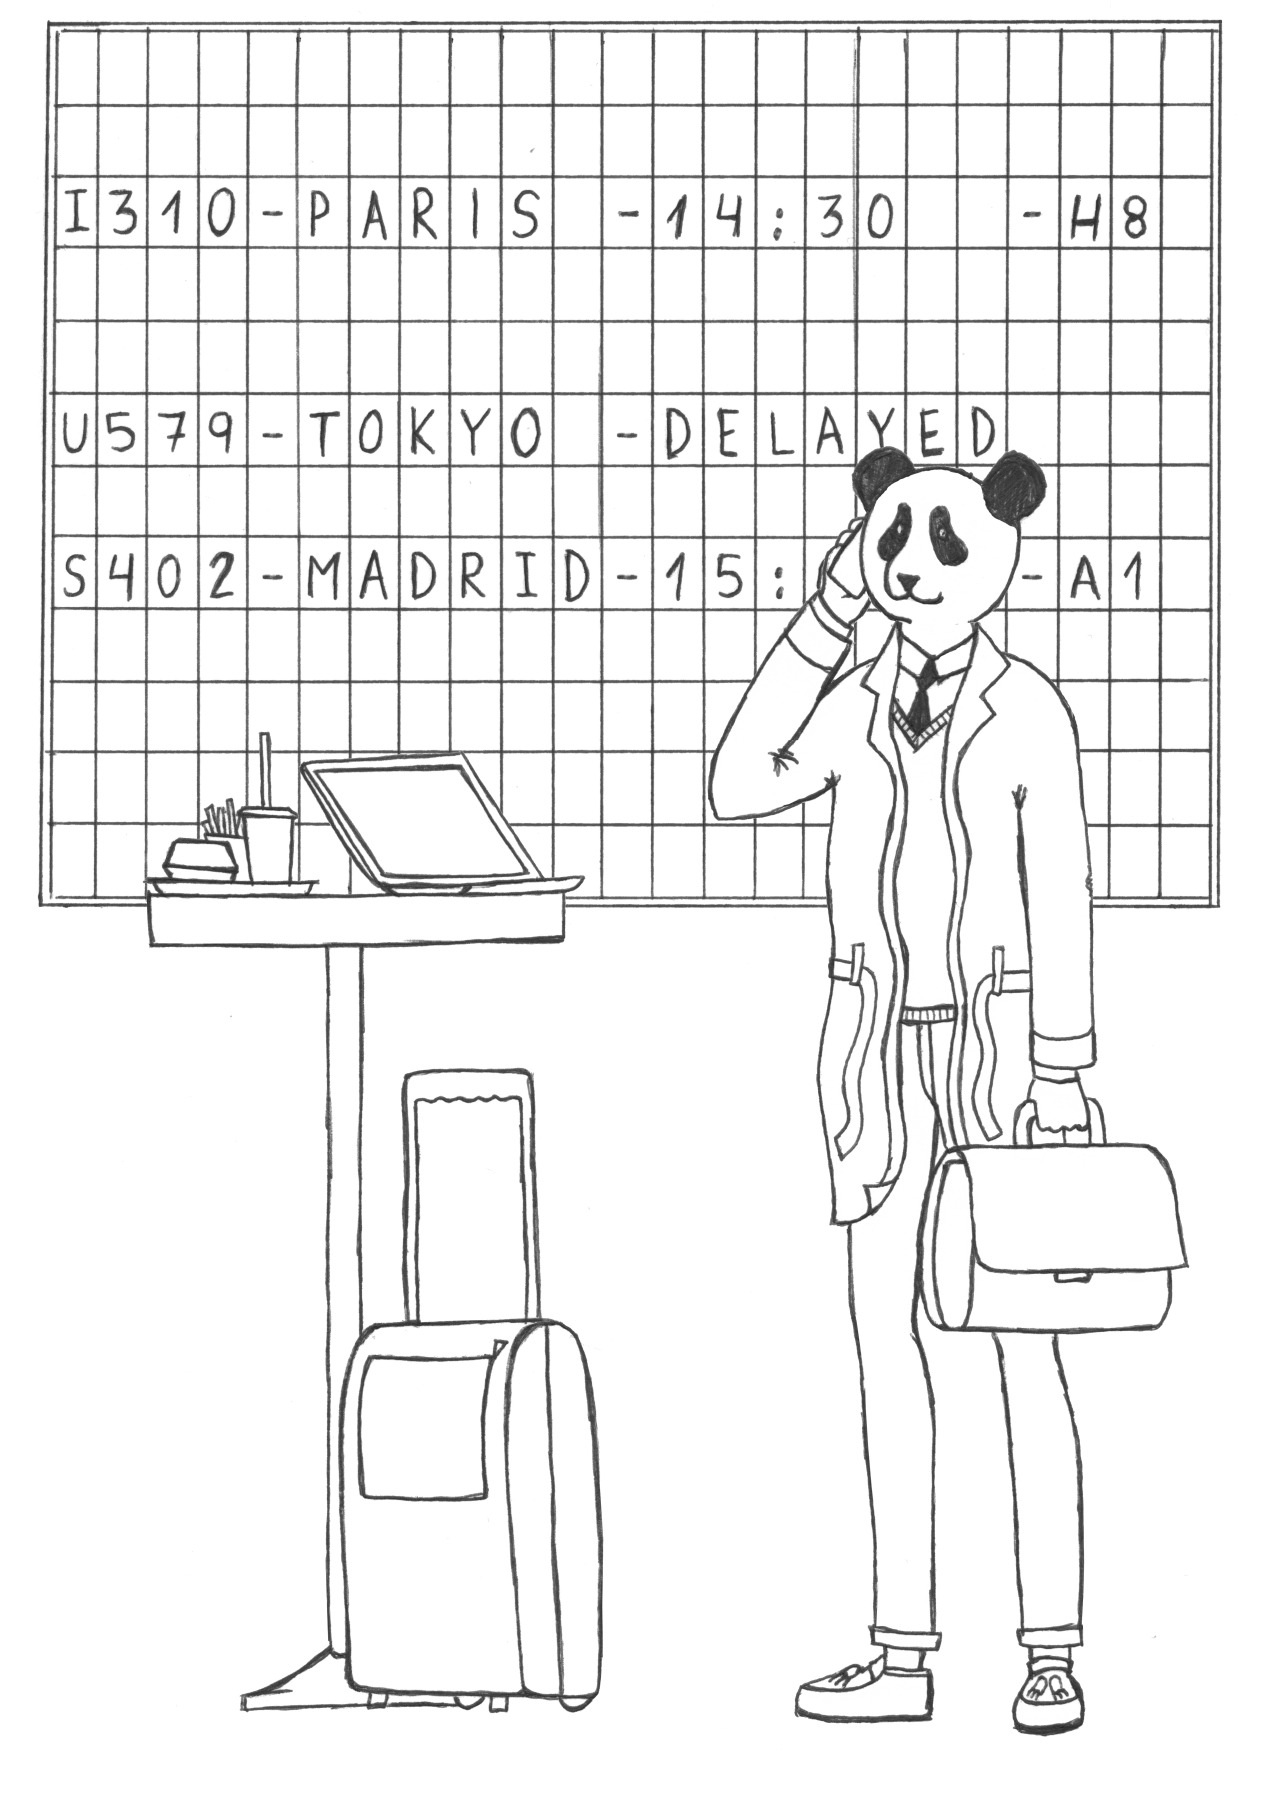 I310-PARIS -14:30 -H8
U579-TOKYO -DELAYED
S402-MADRID-15: -A1